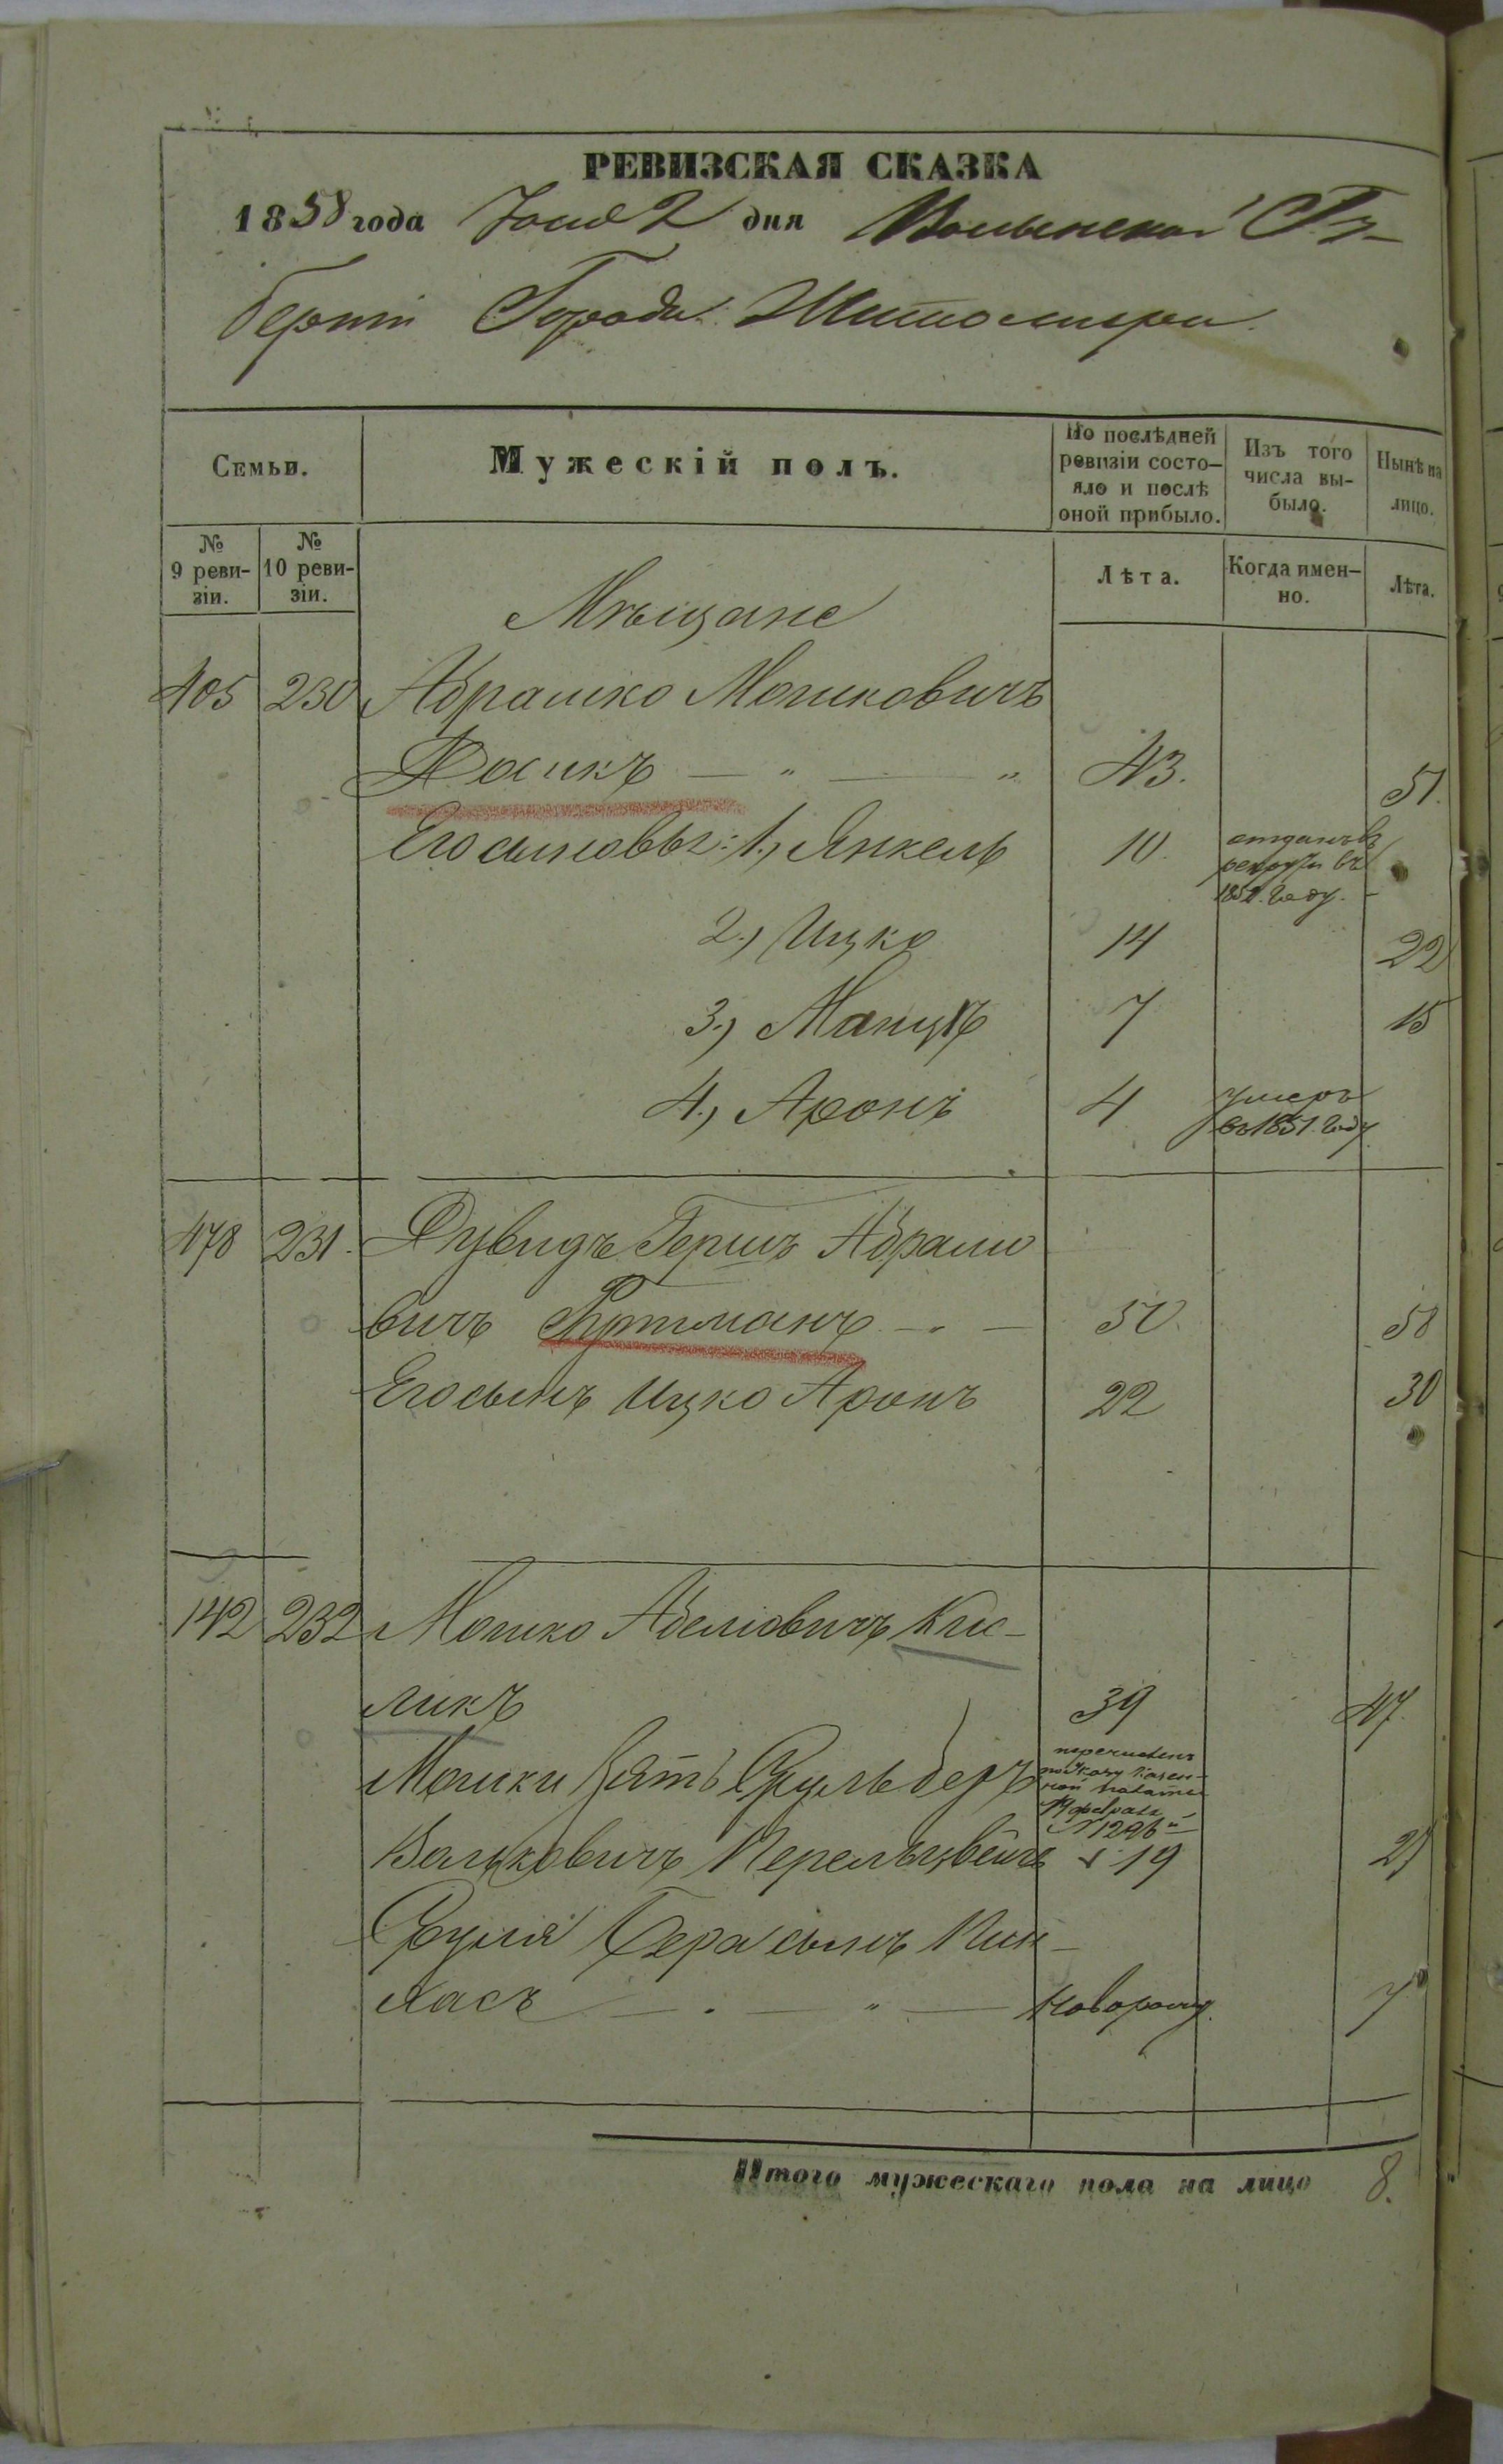 РЕВИЗСКАЯ СКАЗКА
1858 года Іюня 2 дня Волынской Гу-
берніи Города Житомира
Семьи.
Мужескій полъ.
По послѣдней ревизіи состо-яло и послѣ оной прибыло.
Изъ того числа вы-было.
Нынѣ на лицо.
№ 9 реви-зіи.
№ 10 реви-зіи.
Лѣта.
Когда имен-но.
Лѣта.
Мѣщане
405 230 Абрашко Мошковичъ
43. 51.
Его сыновья: 1.) Янкель 10. отданъ въ рекруты въ 1852. году.
2.) Ицко 14 22
3.) 7 15
4.) Аронъ 4 умеръ въ 1851. году
478 231. Дувидъ Гершъ Абрамо
вичъ 50 58
Его сынъ Ицко Аронъ 22 30
142 232 Мошко Кис-
ликъ 39 47.
Мошки зять Фуль Беръ
Вольковичъ Перельцвейгъ 19 27
Фуля Бера сынъ Пин-
хасъ новорожд. 7
Итого мужескаго пола на лицо 8.